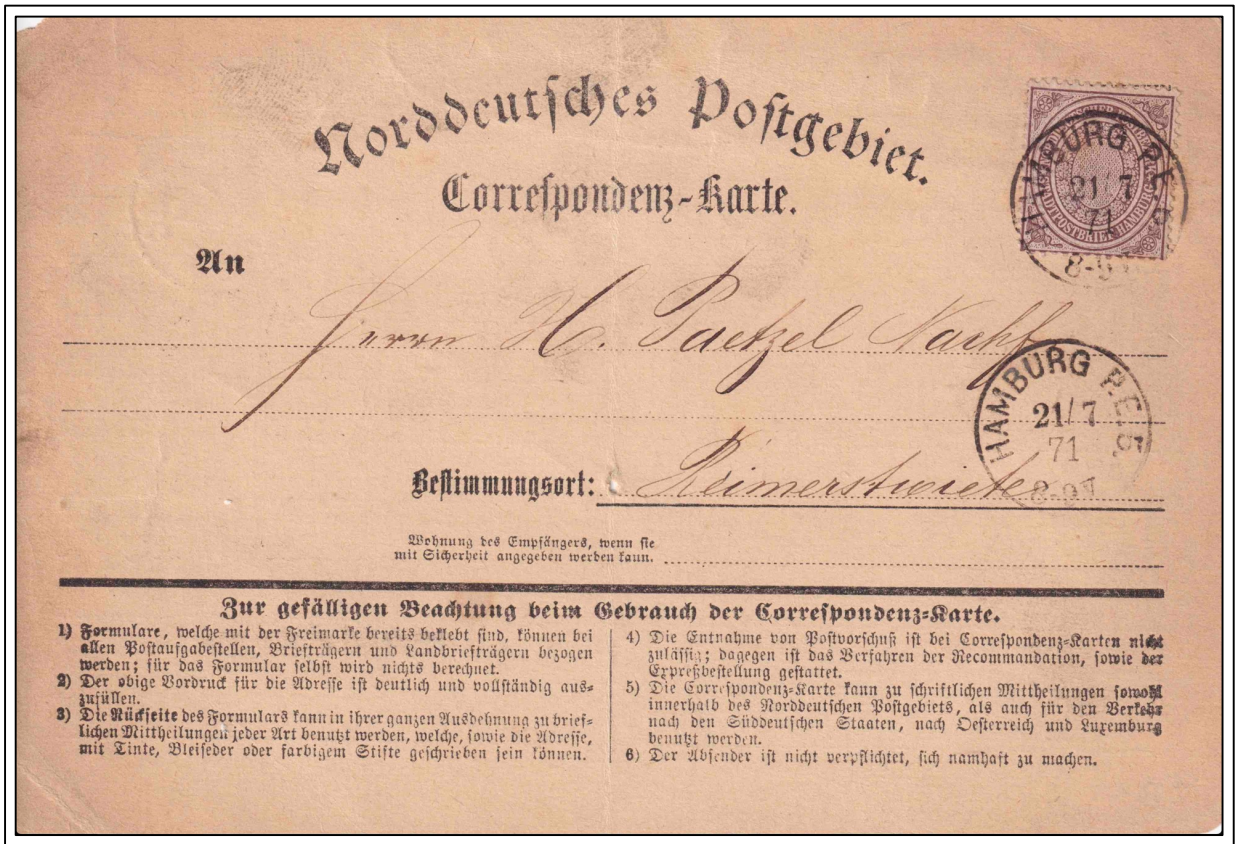 Norddeutsches Postgebiet.
Correspondenz-Karte.
HAMBURG P.E.5.
21/7
71
8-9
STADTPOSTBRIEF HAMBURG
An
Herrn H. Paetzel Nachf
HAMBURG P.E.5.
21/7
71
8-9
Bestimmungsort: Reimerstwiete
Wohnung des Empfängers, wenn sie
mit Sicherheit angegeben werden kann.
Zur gefälligen Beachtung beim Gebrauch der Correspondenz-Karte.
1) Formulare, welche mit der Freimarke bereits beklebt sind, können bei
allen Postaufgabestellen, Briefträgern und Landbriefträgern bezogen
werden; für das Formular selbst wird nichts berechnet.
2) Der obige Vordruck für die Adresse ist deutlich und vollständig aus-
zufüllen.
3) Die Rückseite des Formulars kann in ihrer ganzen Ausdehnung zu brief-
lichen Mittheilungen jeder Art benutzt werden, welche, sowie die Adresse,
mit Tinte, Bleifeder oder farbigem Stifte geschrieben sein können.
4) Die Entnahme von Postvorschuß ist bei Correspondenz-Karten nicht
zulässig; dagegen ist das Verfahren der Recommandation, sowie der
Expreßbestellung gestattet.
5) Die Correspondenz-Karte kann zu schriftlichen Mittheilungen sowohl
innerhalb des Norddeutschen Postgebiets, als auch für den Verkehr
nach den Süddeutschen Staaten, nach Oesterreich und Luxemburg
benutzt werden.
6) Der Absender ist nicht verpflichtet, sich namhaft zu machen.